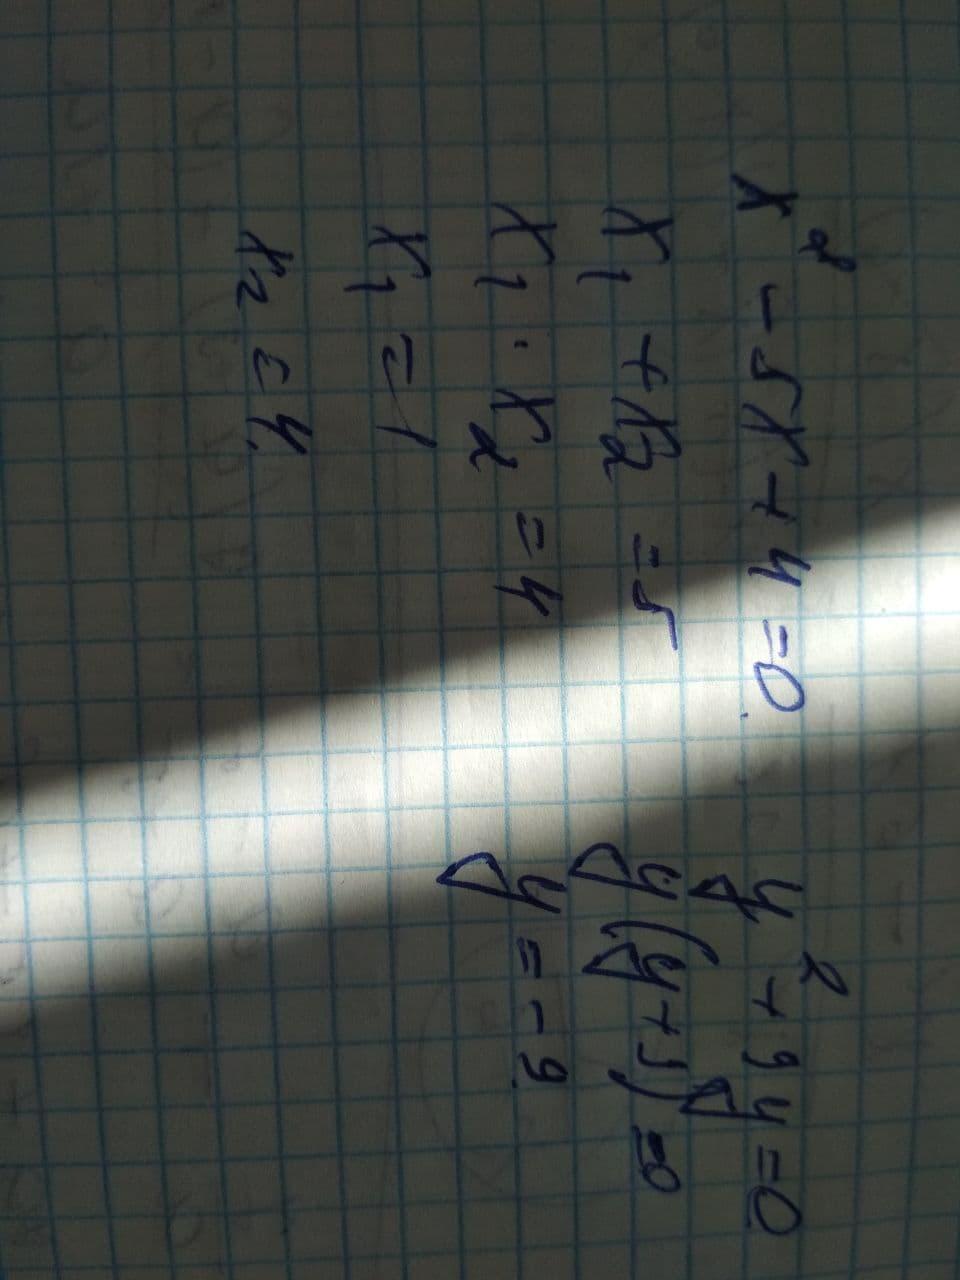 x² - 5x + 4 = 0
x₁ + x₂ = 5
x₁ · x₂ = 4
x₁ = 1
x₂ = 4
y² + 9y = 0
y(y + 9) = 0
y = -9